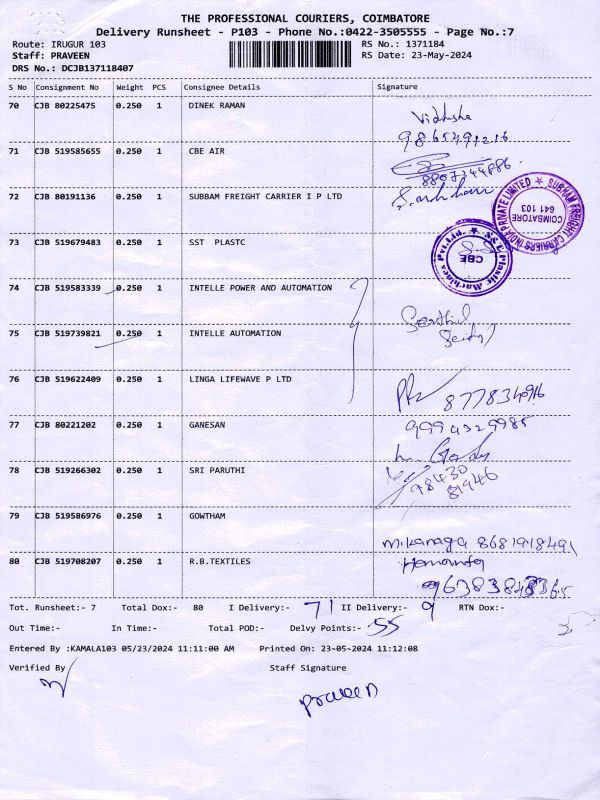 THE PROFESSIONAL COURIERS, COIMBATORE
Delivery Runsheet - P103 - Phone No.:0422-3505555 - Page No.:7
Route: IRUGUR 103 RS No.: 1371184
Staff: PRAVEEN RS Date: 23-May-2024
DRS No.: DCJB137118407
S No Consignment No Weight PCS Consignee Details Signature
70 CJB 80225475 0.250 1 DINEK RAMAN
71 CJB 519585655 0.250 1 CBE AIR
72 CJB 80191136 0.250 1 SUBBAM FREIGHT CARRIER I P LTD
COIMBATORE
641 103
73 CJB 519679483 0.250 1 SST PLASTC
CBE
74 CJB 519583339 0.250 1 INTELLE POWER AND AUTOMATION
75 CJB 519739821 0.250 1 INTELLE AUTOMATION
76 CJB 519622409 0.250 1 LINGA LIFEWAVE P LTD
77 CJB 80221202 0.250 1 GANESAN
9994329985
78 CJB 519266302 0.250 1 SRI PARUTHI
98430
81946
79 CJB 519586976 0.250 1 GOWTHAM
80 CJB 519708207 0.250 1 R.B.TEXTILES
Tot. Runsheet:- 7 Total Dox:- 80 I Delivery:- 71 II Delivery:- 9 RTN Dox:-
Out Time:- In Time:- Total POD:- Delvy Points:- 55
Entered By :KAMALA103 05/23/2024 11:11:00 AM Printed On: 23-05-2024 11:12:08
Verified By Staff Signature
praveen